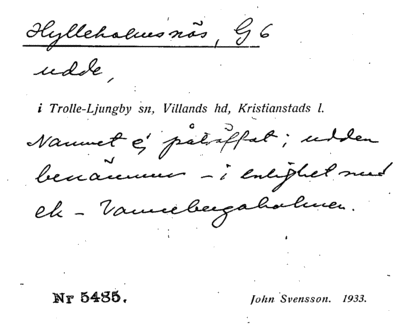 Hylleholmsnäs, G 6
udde,
i Trolle-Ljungby sn, Villands hd, Kristianstads l.
Namnet ej påträffat; udden
benämnes – i enlighet med
ek – Vannebergaholmen.
Nr 5485. John Svensson. 1933.